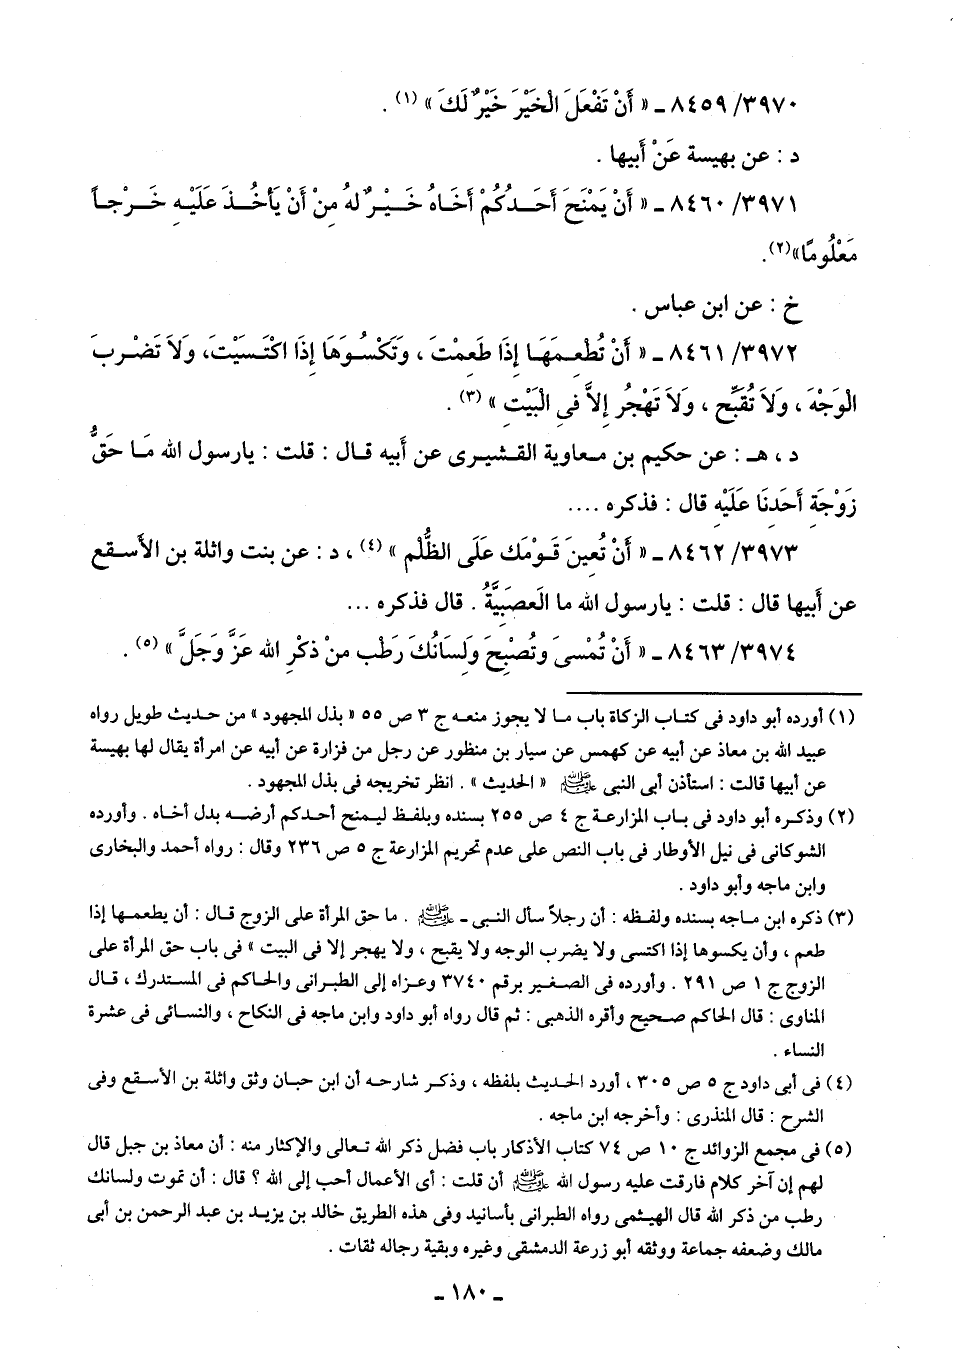 ٨٤٥٩/٣٩٧٠ ـ « أَنْ تَفْعَلَ الْخَيْرَ خَيْرٌ لَكَ » (١) .
د : عن بهيسة عَنْ أَبيها .
٨٤٦٠/٣٩٧١ ـ « أَنْ يَمْنَحَ أَحَدُكُمْ أَخَاهُ خَيْرٌ لهُ مِنْ أَنْ يَأْخُذَ عَلَيْهِ خَرْجاً
مَعْلُومًا»(٢).
خ : عن ابن عباس .
٨٤٦١/٣٩٧٢ ـ « أَنْ تُطْعِمَهَا إِذَا طَعِمْتَ ، وَتَكْسُوَهَا إِذَا اكْتَسَيْتَ، وَلاَ تَضْرِبَ
الْوَجْهَ ، وَلاَ تُقَبِّح ، وَلاَ تَهْجُر إِلاَّ فِى الْبَيْتِ » (٣) .
د ، هـ : عن حكيم بن معاوية القشيرى عن أبيه قال : قلت : يارسول الله مَا حَقُّ
زَوْجَةِ أَحَدِنَا عَلَيْهِ قال : فذكره ....
٨٤٦٢/٣٩٧٣ ـ « أَنْ تُعِينَ قَوْمَك عَلَى الظُّلْم » (٤) ، د : عن بنت واثلة بن الأَسقع
عن أَبيها قال : قلت : يارسول الله ما الْعَصَبِيَّةُ . قال فذكره ...
٨٤٦٣/٣٩٧٤ ـ « أَنْ تُمْسِىَ وَتُصْبِحَ وَلِسَانُكَ رَطْب مِنْ ذِكْرِ الله عَزَّ وَجَلَّ » (٥) .
(١) أورده أبو داود فى كتاب الزكاة باب ما لا يجوز منعه ج ٣ ص ٥٥ « بذل المجهود » من حديث طويل رواه
عبيد الله بن معاذ عن أبيه عن كهمس عن سيار بن منظور عن رجل من فزارة عن أبيه عن امرأة يقال لها بهيسة
عن أبيها قالت : استأذن أبى النبى ﷺ « الحديث » . انظر تخريجه فى بذل المجهود .
(٢) وذكره أبو داود فى باب المزارعة ج ٤ ص ٢٥٥ بسنده وبلفظ ليمنح أحدكم أرضه بدل أخاه . وأورده
الشوكانى فى نيل الأوطار فى باب النص على عدم تحريم المزارعة ج ٥ ص ٢٣٦ وقال : رواه أحمد والبخارى
وابن ماجه وأبو داود .
(٣) ذكره ابن ماجه بسنده ولفظه : أن رجلاً سأل النبى ـ ﷺ . ما حق المرأة على الزوج قال : أن يطعمها إذا
طعم ، وأن يكسوها إذا اكتسى ولا يضرب الوجه ولا يقبح ، ولا يهجر إلا فى البيت » فى باب حق المرأة على
الزوج ج ١ ص ٢٩١ . وأورده فى الصغير برقم ٣٧٤٠ وعزاه إلى الطبرانى والحاكم فى المستدرك ، قال
المناوى : قال الحاكم صحيح وأقره الذهبى : ثم قال رواه أبو داود وابن ماجه فى النكاح ، والنسائى فى عشرة
النساء .
(٤) فى أبى داود ج ٥ ص ٣٠٥ ، أورد الحديث بلفظه ، وذكر شارحه أن ابن حبان وثق واثلة بن الأسقع وفى
الشرح : قال المنذرى : وأخرجه ابن ماجه .
(٥) فى مجمع الزوائد ج ١٠ ص ٧٤ كتاب الأذكار باب فضل ذكر الله تعالى والإكثار منه : أن معاذ بن جبل قال
لهم إن آخر كلام فارقت عليه رسول الله ﷺ أن قلت : أى الأعمال أحب إلى الله ؟ قال : أن تموت ولسانك
رطب من ذكر الله قال الهيثمى رواه الطبرانى بأسانيد وفى هذه الطريق خالد بن يزيد بن عبد الرحمن بن أبى
مالك وضعفه جماعة ووثقه أبو زرعة الدمشقى وغيره وبقية رجاله ثقات .
ـ ١٨٠ ـ